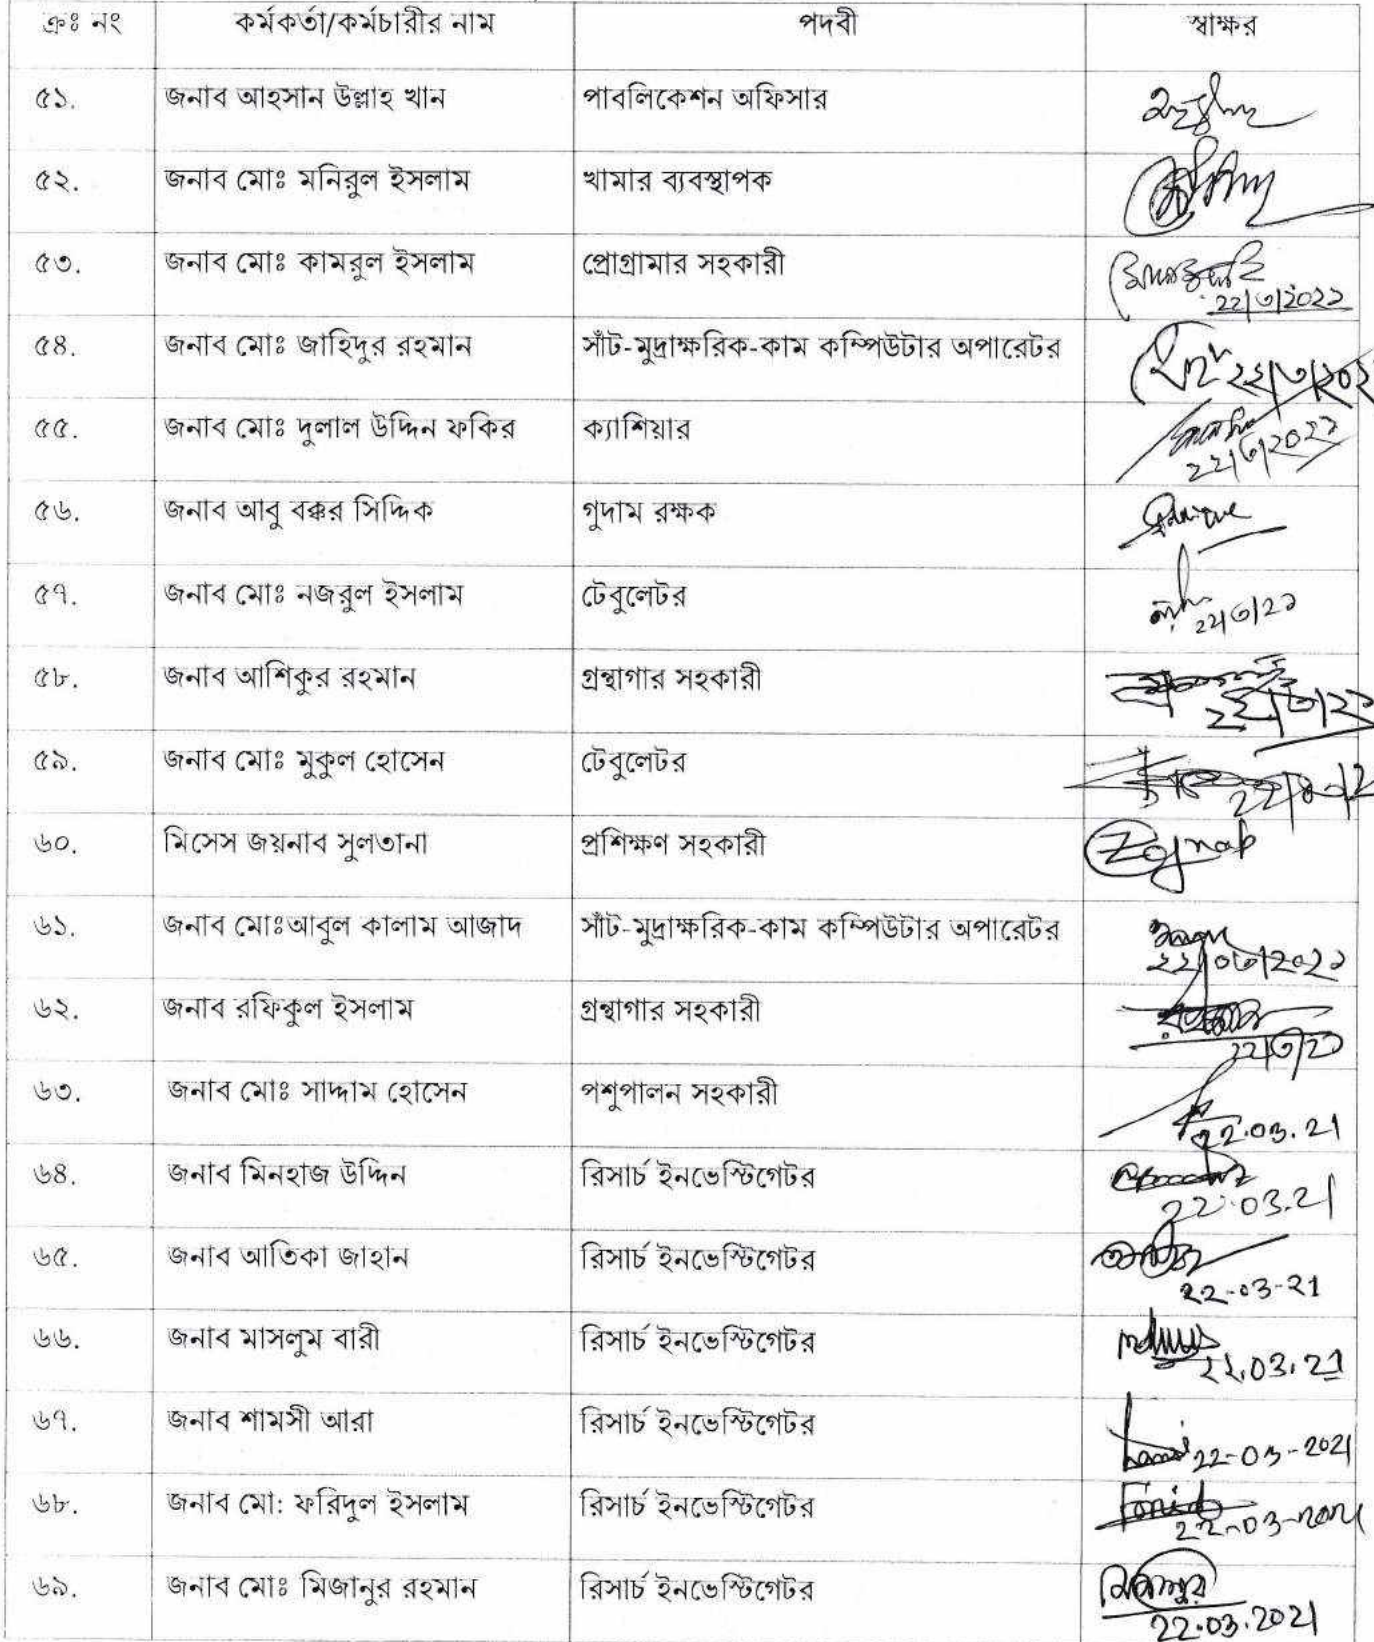 ক্রঃ নং কর্মকর্তা/কর্মচারীর নাম পদবী স্বাক্ষর
৫১. জনাব আহসান উল্লাহ খান পাবলিকেশন অফিসার
৫২. জনাব মোঃ মনিরুল ইসলাম খামার ব্যবস্থাপক
৫৩. জনাব মোঃ কামরুল ইসলাম প্রোগ্রামার সহকারী
২২/৩/২০২১
৫৪. জনাব মোঃ জাহিদুর রহমান সাঁট-মুদ্রাক্ষরিক-কাম কম্পিউটার অপারেটর
৫৫. জনাব মোঃ দুলাল উদ্দিন ফকির ক্যাশিয়ার
২২/৩/২০২১
৫৬. জনাব আবু বক্কর সিদ্দিক গুদাম রক্ষক
৫৭. জনাব মোঃ নজরুল ইসলাম টেবুলেটর
২২/৩/২১
৫৮. জনাব আশিকুর রহমান গ্রন্থাগার সহকারী
২২/৩/২১
৫৯. জনাব মোঃ মুকুল হোসেন টেবুলেটর
৬০. মিসেস জয়নাব সুলতানা প্রশিক্ষণ সহকারী Zojnab
৬১. জনাব মোঃআবুল কালাম আজাদ সাঁট-মুদ্রাক্ষরিক-কাম কম্পিউটার অপারেটর
২২/০৩/২০২১
৬২. জনাব রফিকুল ইসলাম গ্রন্থাগার সহকারী
২২/৩/২১
৬৩. জনাব মোঃ সাদ্দাম হোসেন পশুপালন সহকারী
22.03.21
৬৪. জনাব মিনহাজ উদ্দিন রিসার্চ ইনভেস্টিগেটর
22.03.21
৬৫. জনাব আতিকা জাহান রিসার্চ ইনভেস্টিগেটর
22-03-21
৬৬. জনাব মাসলুম বারী রিসার্চ ইনভেস্টিগেটর
22.03.21
৬৭. জনাব শামসী আরা রিসার্চ ইনভেস্টিগেটর
22-03-2021
৬৮. জনাব মো: ফরিদুল ইসলাম রিসার্চ ইনভেস্টিগেটর
22-03-2021
৬৯. জনাব মোঃ মিজানুর রহমান রিসার্চ ইনভেস্টিগেটর মিজানুর
22.03.2021